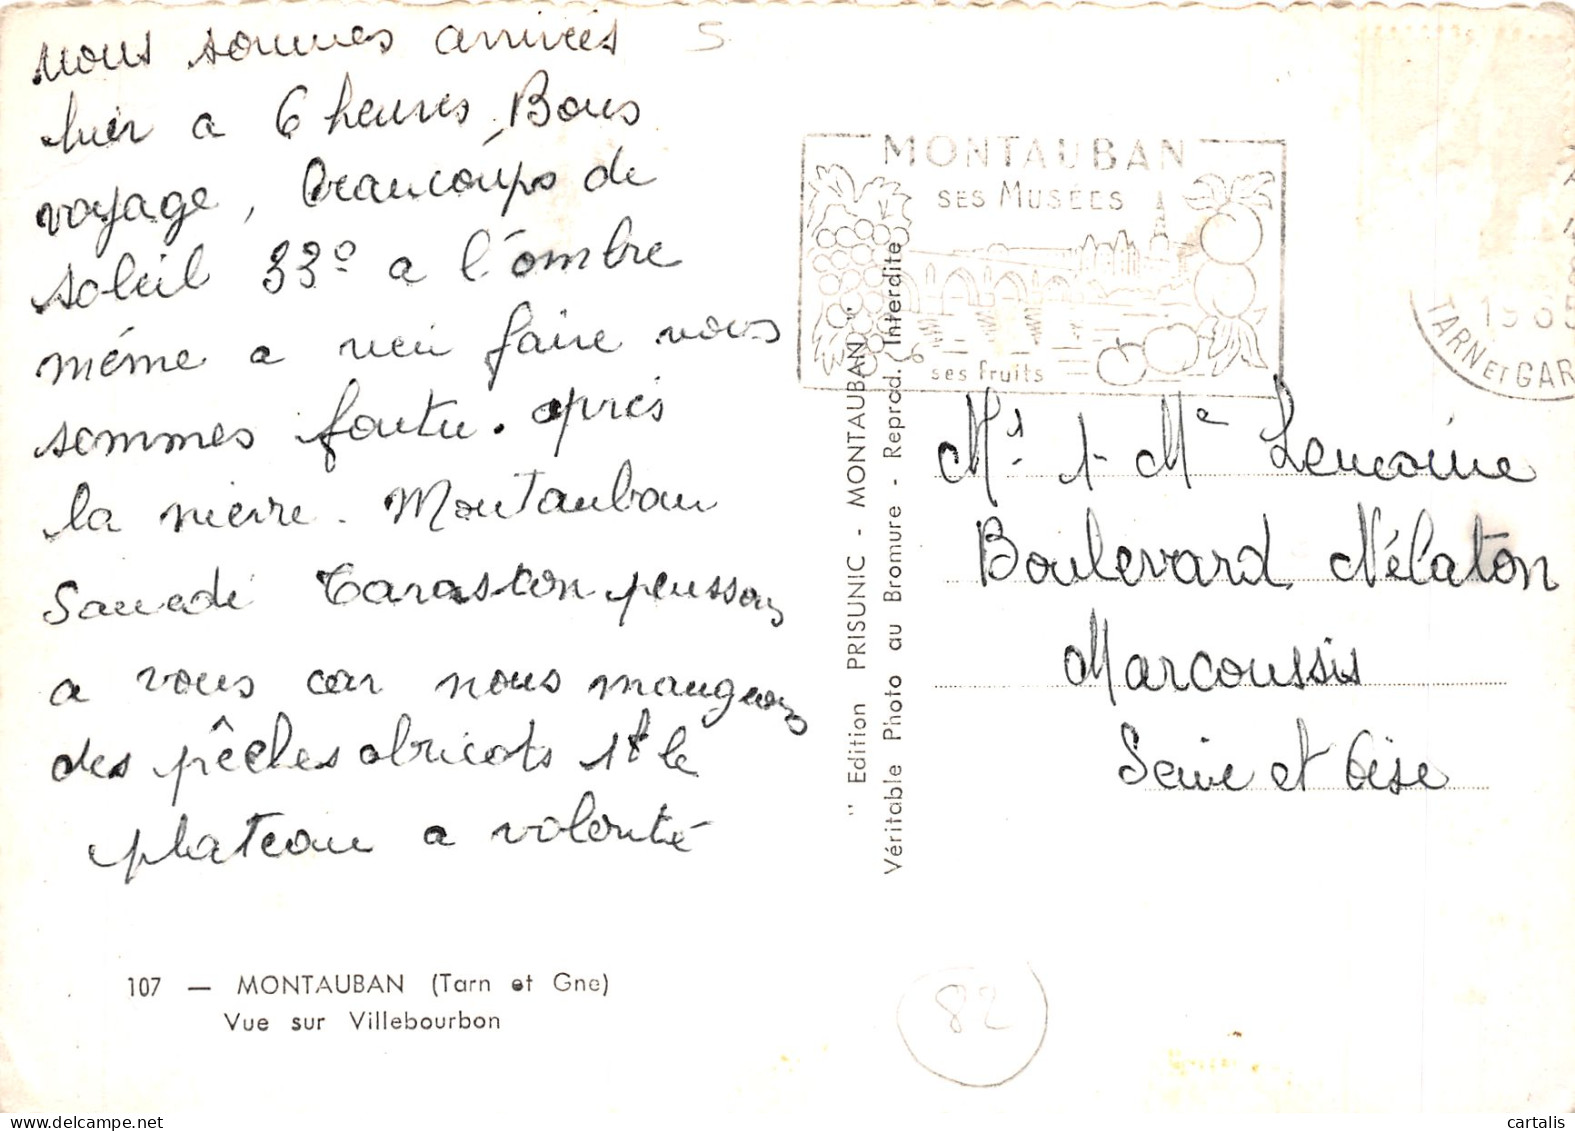 nous sommes arrivées
hier a 6 heures, Bons
voyage, beaucoups de
soleil 33° a l'ombre
même a rien faire nous
sommes foutu. après
la pierre. Montauban
Samedi Tarascon penssons
a vous car nous mangeons
des pêches abricots 1t le
plateau a volonté
107 — MONTAUBAN (Tarn et Gne)
Vue sur Villebourbon
S
" Edition PRISUNIC - MONTAUBAN "
Véritable Photo au Bromure - Reprod. Interdite
MONTAUBAN
SES MUSÉES
ses fruits
1965
TARN ET GAR
Mr. 1- Me Lemoine
Boulevard Nélaton
Marcoussis
Seine et Oise
82
www.delcampe.net
cartalis